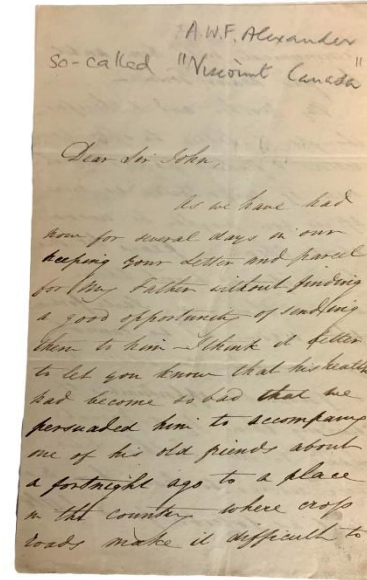 A.W.F. Alexander
so-called "Viscount Canada"
Dear Sir John,
As we have had
now for several days in our
keeping your Letter and parcel
for my Father without finding
a good opportunity of sending
them to him - I think it better
to let you know that his health
had become so bad that we
persuaded him to accompany
one of his old friends about
a fortnight ago to a place
in the country where cross
roads make it difficult to